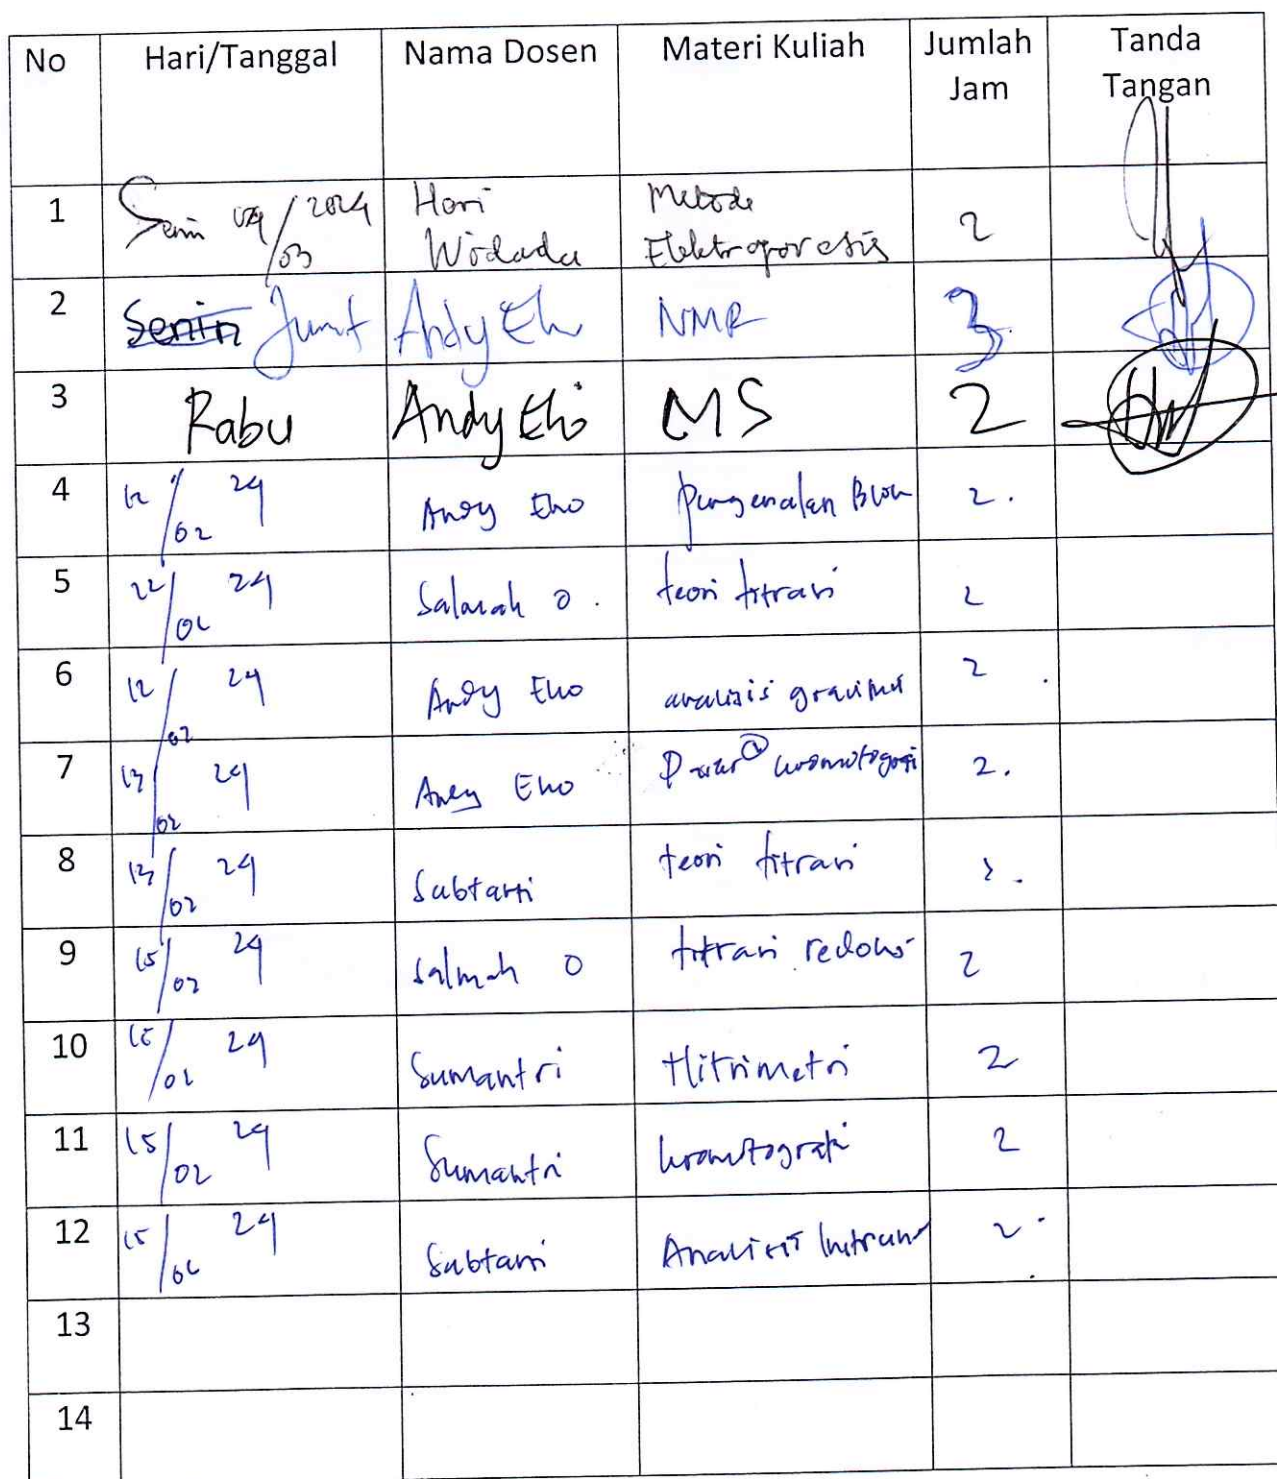 No Hari/Tanggal Nama Dosen Materi Kuliah Jumlah Jam Tanda Tangan
1 Senin 04/03 2024 Hari Widada Metode Elektroporesis 2
2 Senin Jumat Andy Eko NMR 3
3 Rabu Andy Eko MS 2
4 12/02 24 Andy Eko pengenalan Blok 2.
5 22/02 24 Salmah O. teori titrasi 2
6 12/02 24 Andy Eko analisis gravimetri 2
7 13/02 24 Andy Eko Dasar@ kromatografi 2.
8 13/02 24 Subtarti teori titrasi
9 15/02 24 Salmah O titrasi redoks 2
10 24 Sumantri 2
11 15/02 24 Sumantri kromatografi 2
12 15/02 24 Analisis Instrumen 2
13
14